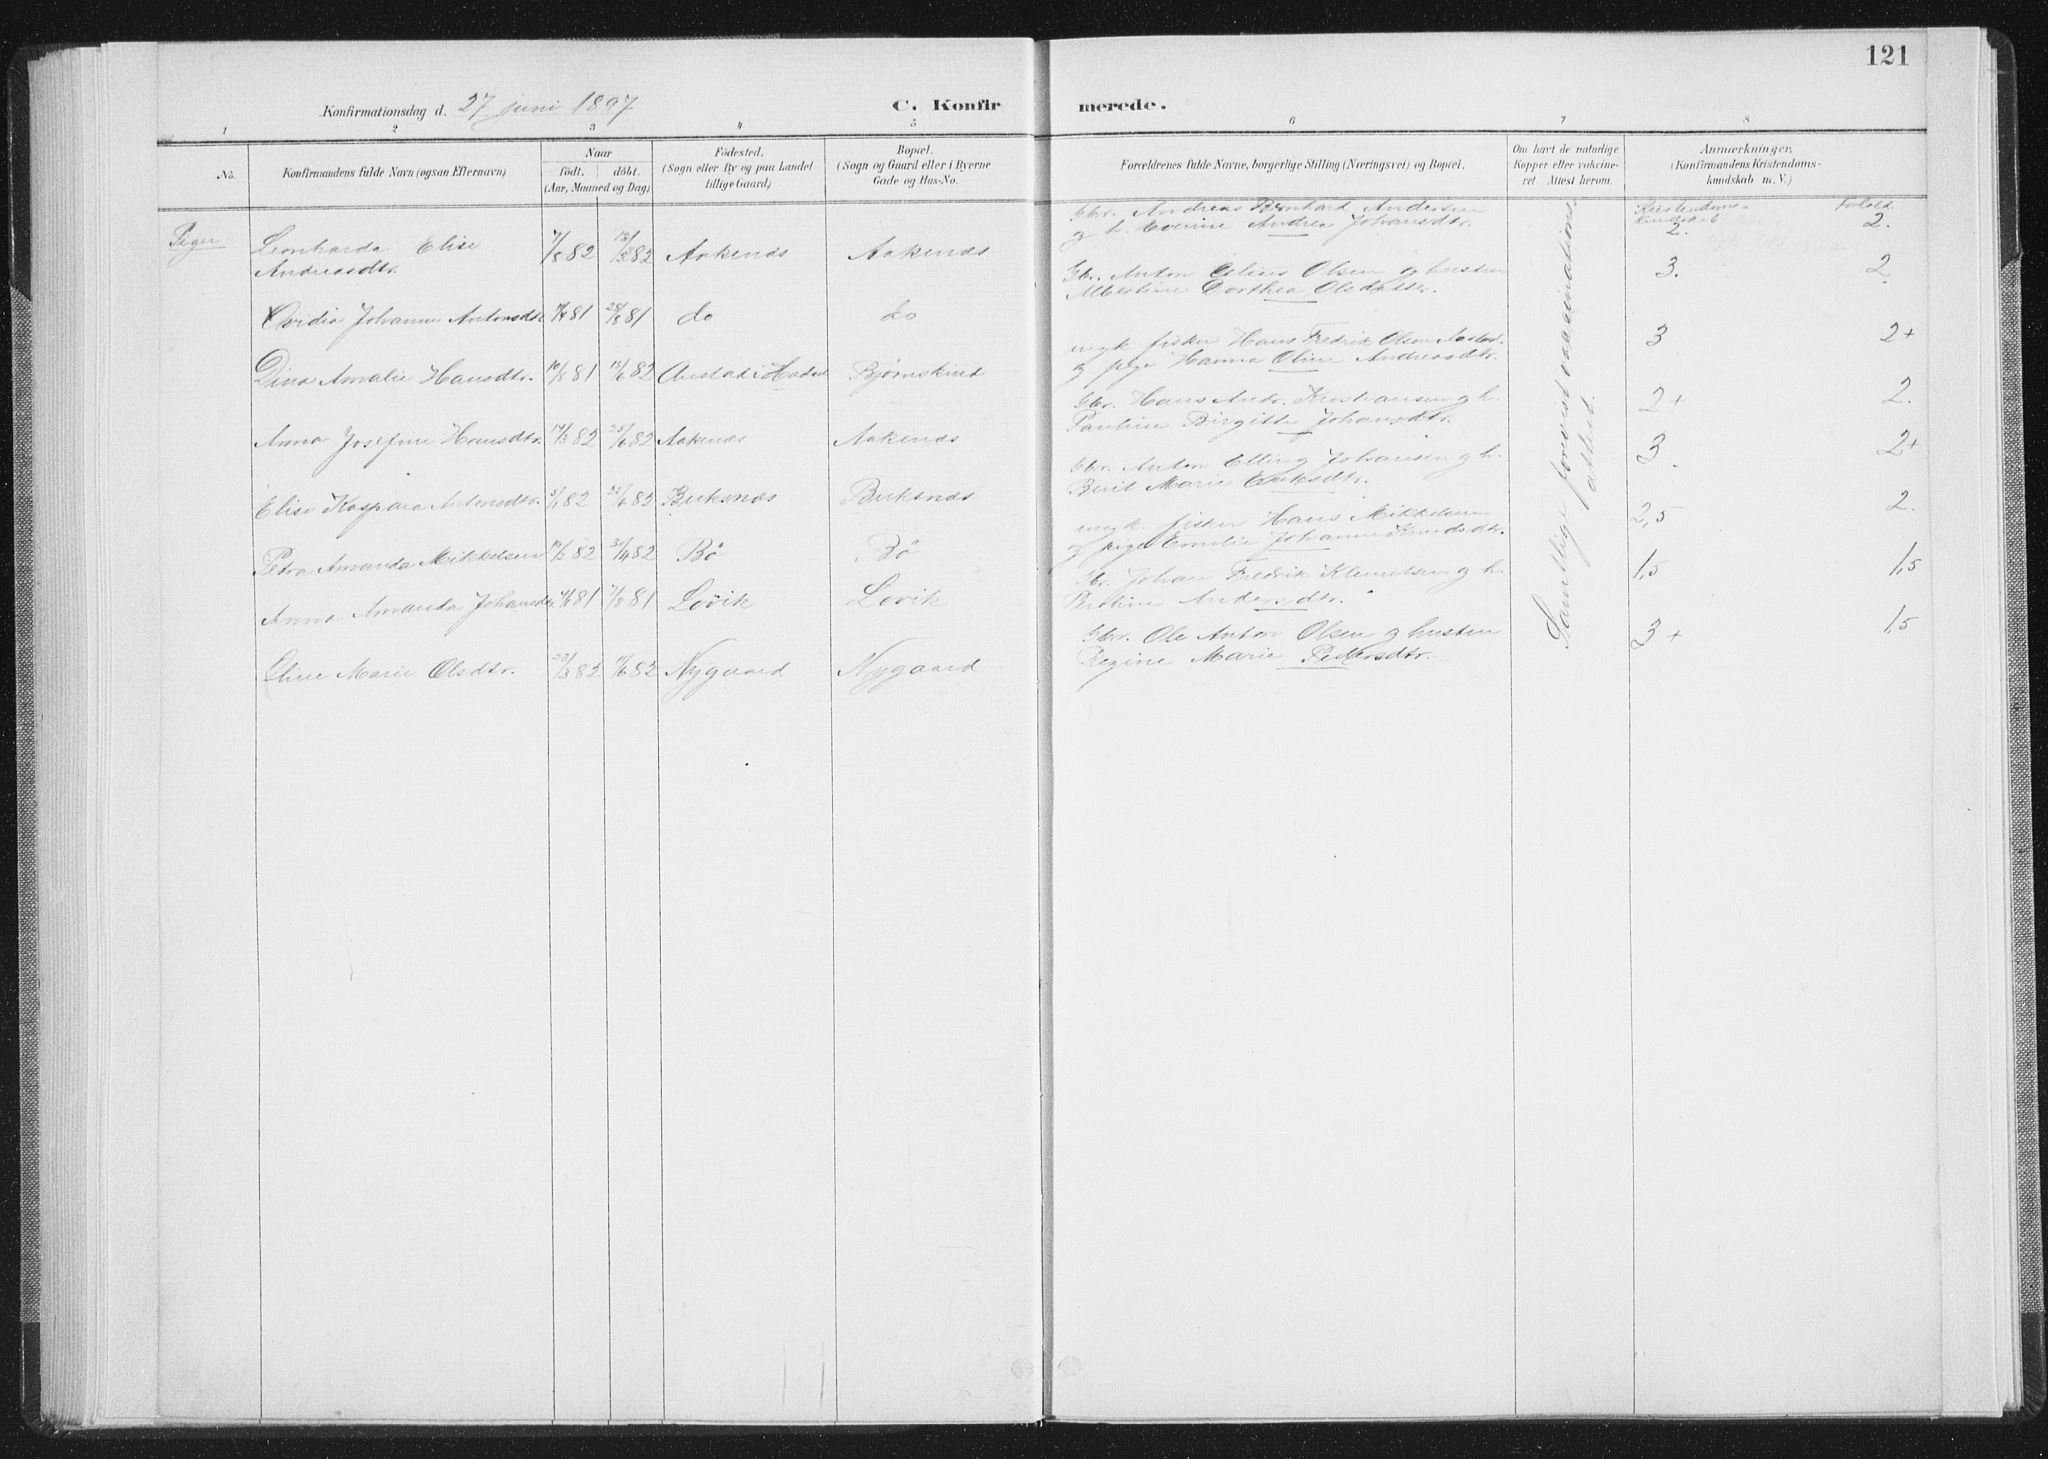 121
Konfirmationsdag d. 27 juni 1897
C. Konfir merede.
1 2 3 4 5 6 7 8
No.
Konfirmandens fulde Navn (ogsaa Efternavn)
Naar
födt. döbt.
(Aar, Maaned og Dag)
Födested.
(Sogn eller By og paa Landet
tillige Gaard)
Bopæl.
(Sogn og Gaard eller i Byerne
Gade og Hus-No.
Forældrenes fulde Navne, borgerlige Stilling (Næringsvei) og Bopæl.
Om havt de naturlige
Kopper eller vakcine-
ret. Attest herom.
Anmærkninger,
(Konfirmandens Kristendoms-
kundskab m. V.)
Kristendoms-
kundskab
Forhold
Piger
Leonharda Elise
Andreasdtr.
7/8 82 13/ 82 Aakenes Aakenes
Gbr. Andreas Bernhard Andersen
og h. Everine Andrea Johansdtr.
2. 2.
Ovidia Johanne Antonsdtr
81 28/8 81 do do
Gbr. Anton Edius Olsen og hustru
Albertine Dorthea Olsdatter.
3. 2.
Dina Amalie Hansdtr.
10/8 81 18/6 82 Anstad i Hadsel Bjørnskind
ungk. fisker Hans Fredrik Olsen
og pige Hanna Oline Andreasdtr.
3 2+
Anna Josefine Hansdtr.
14/3 82 25/6 82 Aakenes Aakenes
Gbr. Hans Andr. Kristiansen og h.
Pauline Birgitte Johansdtr.
2+ 2.
Elise Kaspara Antonsdtr.
5/1 82 25/6 82 Buksnes Buksnes
Gbr. Anton Elling Johansen og h.
Berit Marie Eriksdtr.
3. 2+
Petra Amanda Mikkelsen
82 30/4 82 Bö Bö
ungk. fisker Hans Mikkelsen
og pige Emilie Johanne Knudsdtr.
2,5 2.
Anna Amanda Johansdtr.
81 7/8 81 Lovik Lovik
Gbr. Johan Fredrik Klemetsen og h.
Andersdtr.
1,5 1,5
Eline Marie Olsdtr.
23/3 82 11/6 82 Nygaard Nygaard
Gbr. Ole Anton Olsen og hustru
Regine Marie Pedersdtr.
3+ 1,5
Samtlige forevist vaccinations-
attest.